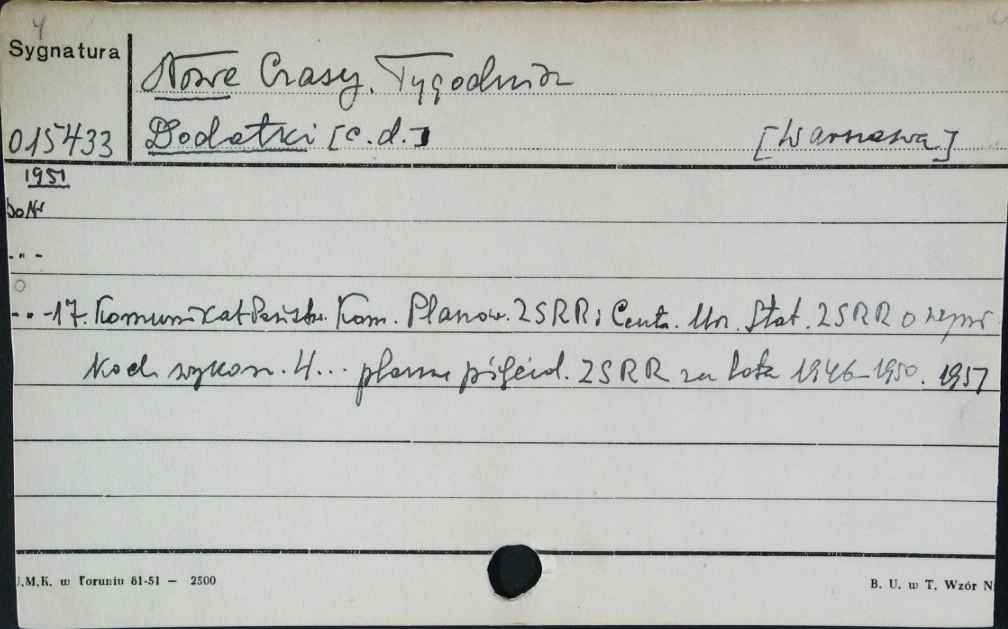 4
Sygnatura
Nowe Czasy. Tygodnik
015433
Dodatki [c.d.]
[Warszawa]
1951
Do Nr
-"-
-"- 17. Komunikat Państw. Kom. Planow. ZSRR i Centr. Urz. Stat. ZSRR o wyni
kach wykon. 4... planu pięciol. ZSRR za lata 1946-1950. 1951
U.M.K. w Toruniu 81-51 — 2500
B. U. w T. Wzór N